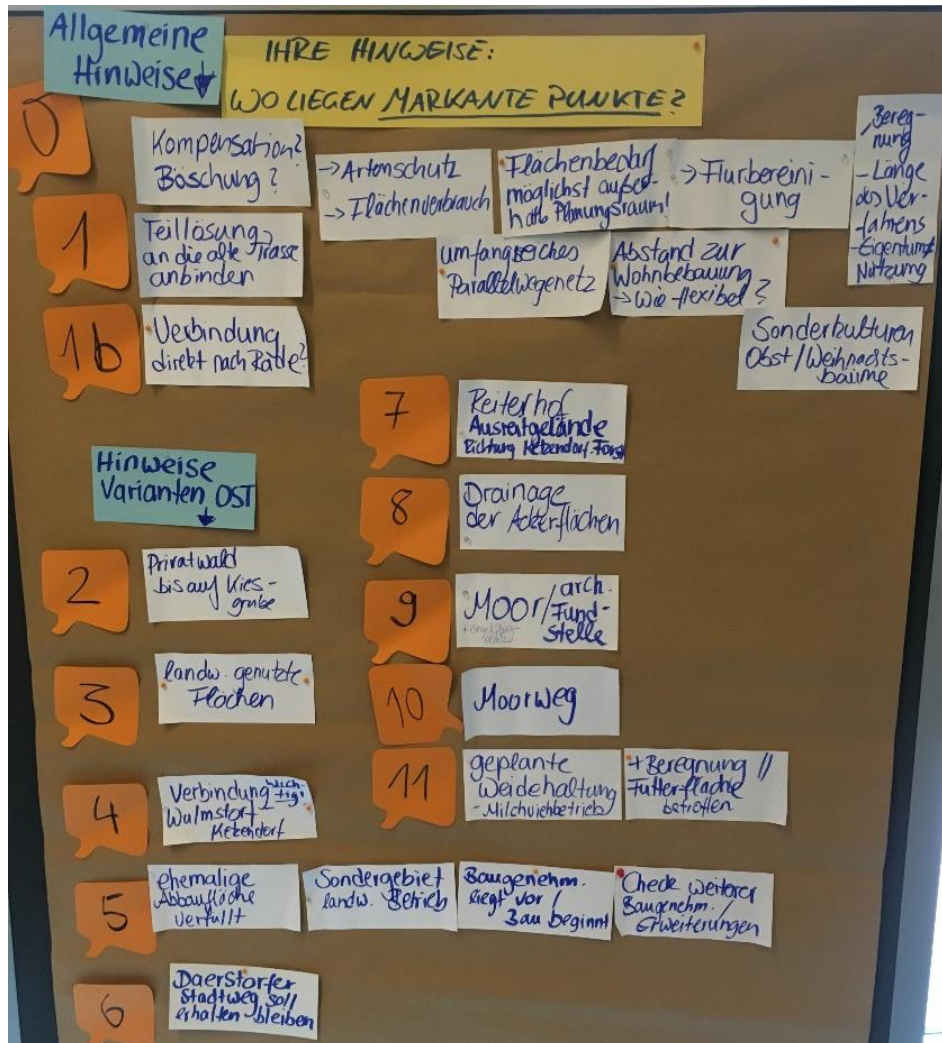 Allgemeine
Hinweise ↓
IHRE HINWEISE:
WO LIEGEN MARKANTE PUNKTE?
0
Kompensation?
Böschung?
→ Artenschutz
→ Flächenverbrauch
Flächenbedarf
möglichst außer-
halb Planungsraum!
→ Flurbereini-
gung
Bereg-
nung
- Länge
des Ver-
fahrens
- Eigentum ≠
Nutzung
1
Teillösung
an die alte Trasse
anbinden
umfangreiches
Parallelwegenetz
Abstand zur
Wohnbebauung
→ Wie flexibel?
1b
Verbindung
direkt nach Rade?
Sonderkulturen
Obst/Weihnachts-
bäume
7
Reiterhof
Ausreitgelände
Richtung Ketzendorf. Forst
Hinweise
Varianten OST
↓
8
Drainage
der Ackerflächen
2
Privatwald
bis auf Kies-
grube
9
Moor/
arch.
Fund-
stelle
3
landw. genutzte
Flächen
10
Moorweg
4
Verbindung wich-
tig!
Wulmstorf-
Ketzendorf
11
geplante
Weidehaltung
- Milchviehbetrieb
+ Beregnung //
Futterfläche
betroffen
5
ehemalige
Abbaufläche
verfüllt
Sondergebiet
landw. Betrieb
Baugenehm.
liegt vor /
Bau beginnt
Check weiterer
Baugenehm. /
Erweiterungen
6
Daerstorfer
Stadtweg soll
erhalten bleiben